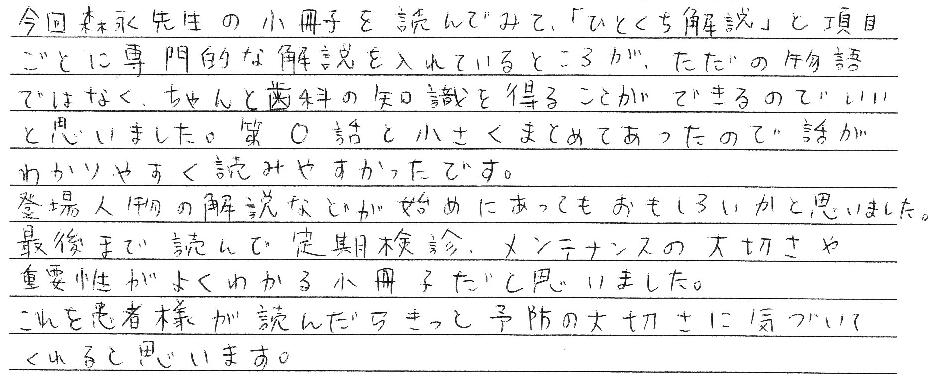 今回森永先生の小冊子を読んでみて、「ひとくち解説」と項目
ごとに専門的な解説を入れているところが、ただの物語
ではなく、ちゃんと歯科の知識を得ることができるのでいい
と思いました。第〇話と小さくまとめてあったので話が
わかりやすく読みやすかったです。
登場人物の解説などが始めにあってもおもしろいかと思いました。
最後まで読んで定期検診、メンテナンスの大切さや
重要性がよくわかる小冊子だと思いました。
これを患者様が読んだらきっと予防の大切さに気づいて
くれると思います。